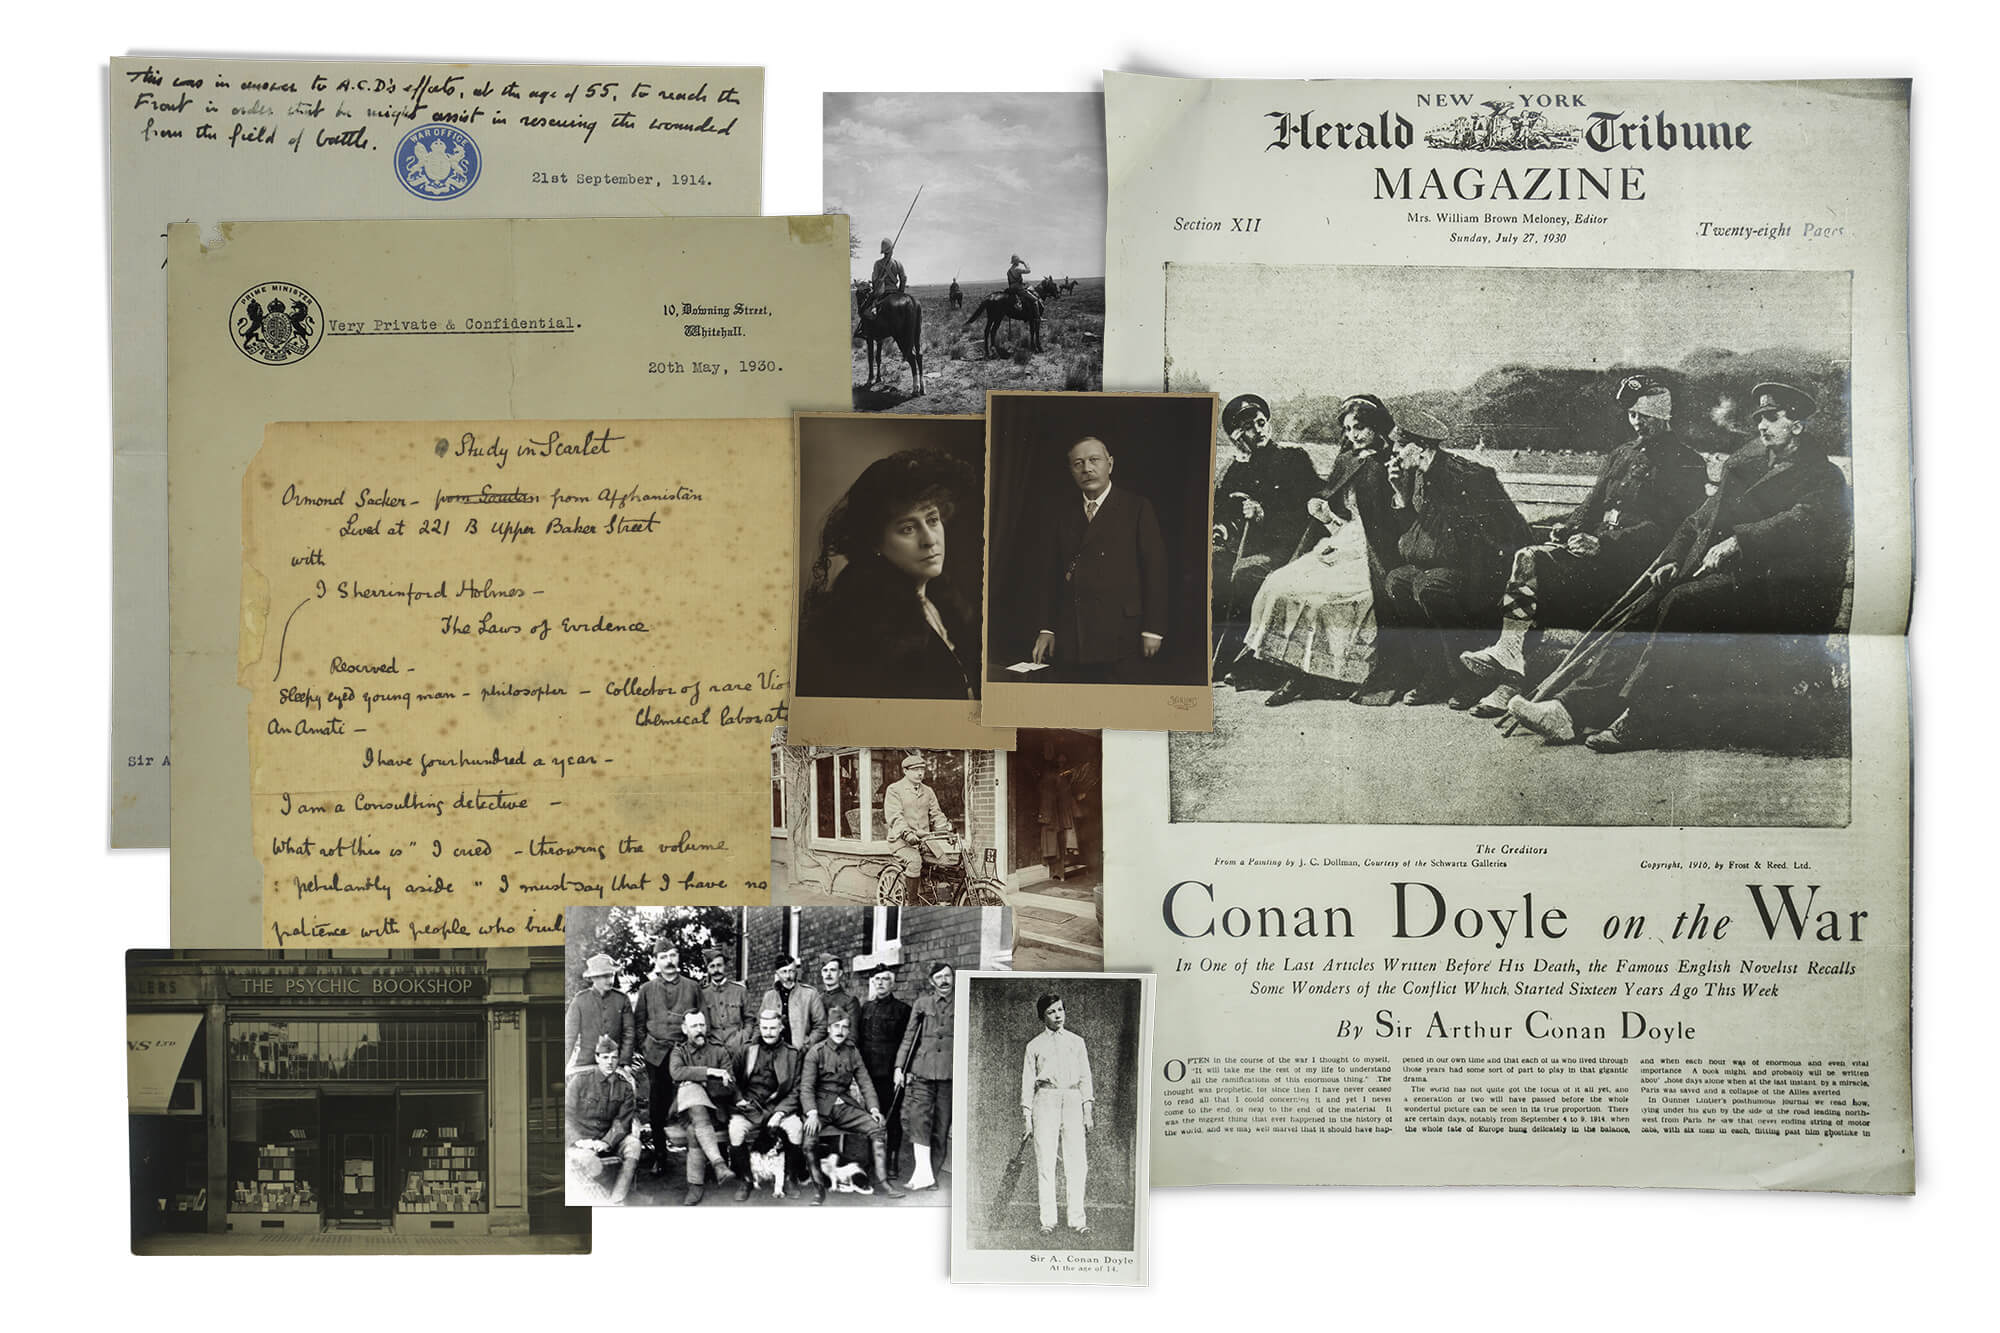 This was in answer to A.C.D's efforts, at the age of 55, to reach the
Front in order that he might assist in rescuing the wounded
from the field of battle.
WAR OFFICE
21st September, 1914.
Sir A
PRIME MINISTER
Very Private & Confidential.
10, Downing Street,
Whitehall.
20th May, 1930.
Study in Scarlet
Ormond Sacker - from Soudan from Afghanistan
Lived at 221 B Upper Baker Street
with
I Sherrinford Holmes -
The Laws of Evidence
Reserved -
Sleepy eyed young man - philosopher - Collector of rare Vio
An Amati -
Chemical laborat
I have four hundred a year -
I am a Consulting detective -
What rot this is" I cried - throwing the volume
: petulantly aside " I must say that I have no
patience with people who build
THE PSYCHIC BOOKSHOP
LERS
NS LTD
Sir A. Conan Doyle
At the age of 14.
NEW YORK
Herald Tribune
MAGAZINE
Mrs. William Brown Meloney, Editor
Section XII
Sunday, July 27, 1930
Twenty-eight Pages
The Creditors
From a Painting by J. C. Dollman, Courtesy of the Schwartz Galleries
Copyright, 1916, by Frost & Reed. Ltd.
Conan Doyle on the War
In One of the Last Articles Written Before His Death, the Famous English Novelist Recalls
Some Wonders of the Conflict Which Started Sixteen Years Ago This Week
By Sir Arthur Conan Doyle
OFTEN in the course of the war I thought to myself,
"It will take me the rest of my life to understand
all the ramifications of this enormous thing." The
thought was prophetic, for since then I have never ceased
to read all that I could concerning it and yet I never
come to the end, or near to the end of the material It
was the biggest thing that ever happened in the history of
the world, and we may well marvel that it should have hap-
pened in our own time and that each of us who lived through
those years had some sort of part to play in that gigantic
drama.
The world has not quite got the focus of it all yet, and
a generation or two will have passed before the whole
wonderful picture can be seen in its true proportion. There
are certain days, notably from September 4 to 9, 1914, when
the whole fate of Europe hung delicately in the balance,
and when each hour was of enormous and even vital
importance A book might and probably will be written
about those days alone when at the last instant, by a miracle,
Paris was saved and a collapse of the Allies averted
In Gunner Lintier's posthumous journal we read how,
lying under his gun by the side of the road leading north-
west from Paris he saw that never ending string of motor
cabs, with six men in each, flitting past him ghostlike in